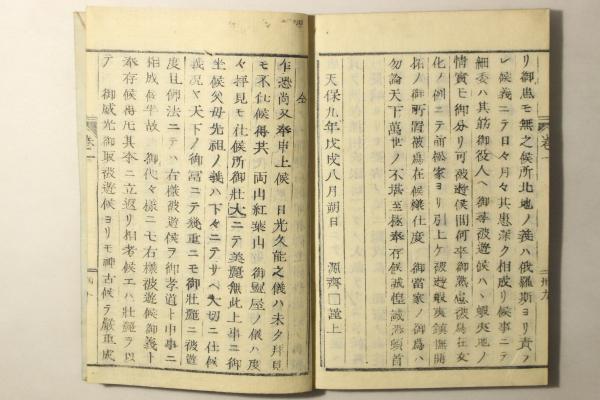 リ御患モ無之候所北地ノ義ハ俄羅斯ヨリ責ラ
レ候義ニテ日々月々其患深ク相成リ候事ニテ
細委ハ其筋御役人ヘ御尋被遊候ハヽ蝦夷地ノ
情実モ御分リ可被遊候間何卒御熟慮被為在女
化ノ例ニテ前松家ヨリ引上ケ被遊蝦夷鎮撫開
拓ノ御所置被為在候様仕度 御當家ノ御為ハ
勿論天下萬世ノ不城至極奉存候誠惶誠恐頓首
天保九年戊戌八月朔日
源齊 謹上
卷一
卅九
仝
乍恐尚又奉申上候 日光久能之儀ハ未タ拜見
モ不仕候得共両山紅葉山 御霊屋ノ儀ハ度
々拝見モ仕候所御壮大ニテ美麗無此上事ニ御
坐候父母先祖ノ義ハ下々ニテサヘ大切ニ仕候
義況ヤ天下ノ御富ニテ幾重ニモ御壮麗ニ被遊
度且佛法ニテハ右様被遊候ヲ御孝道ト申事ニ
相成候半故 御代々様ニモ右様被遊候御義ト
奉存候得共其本ニ立返リ相考候エハ壮麗ヲ以
テ 御威光御取被遊候ヨリモ神古候テ嚴重成
卷一
四十